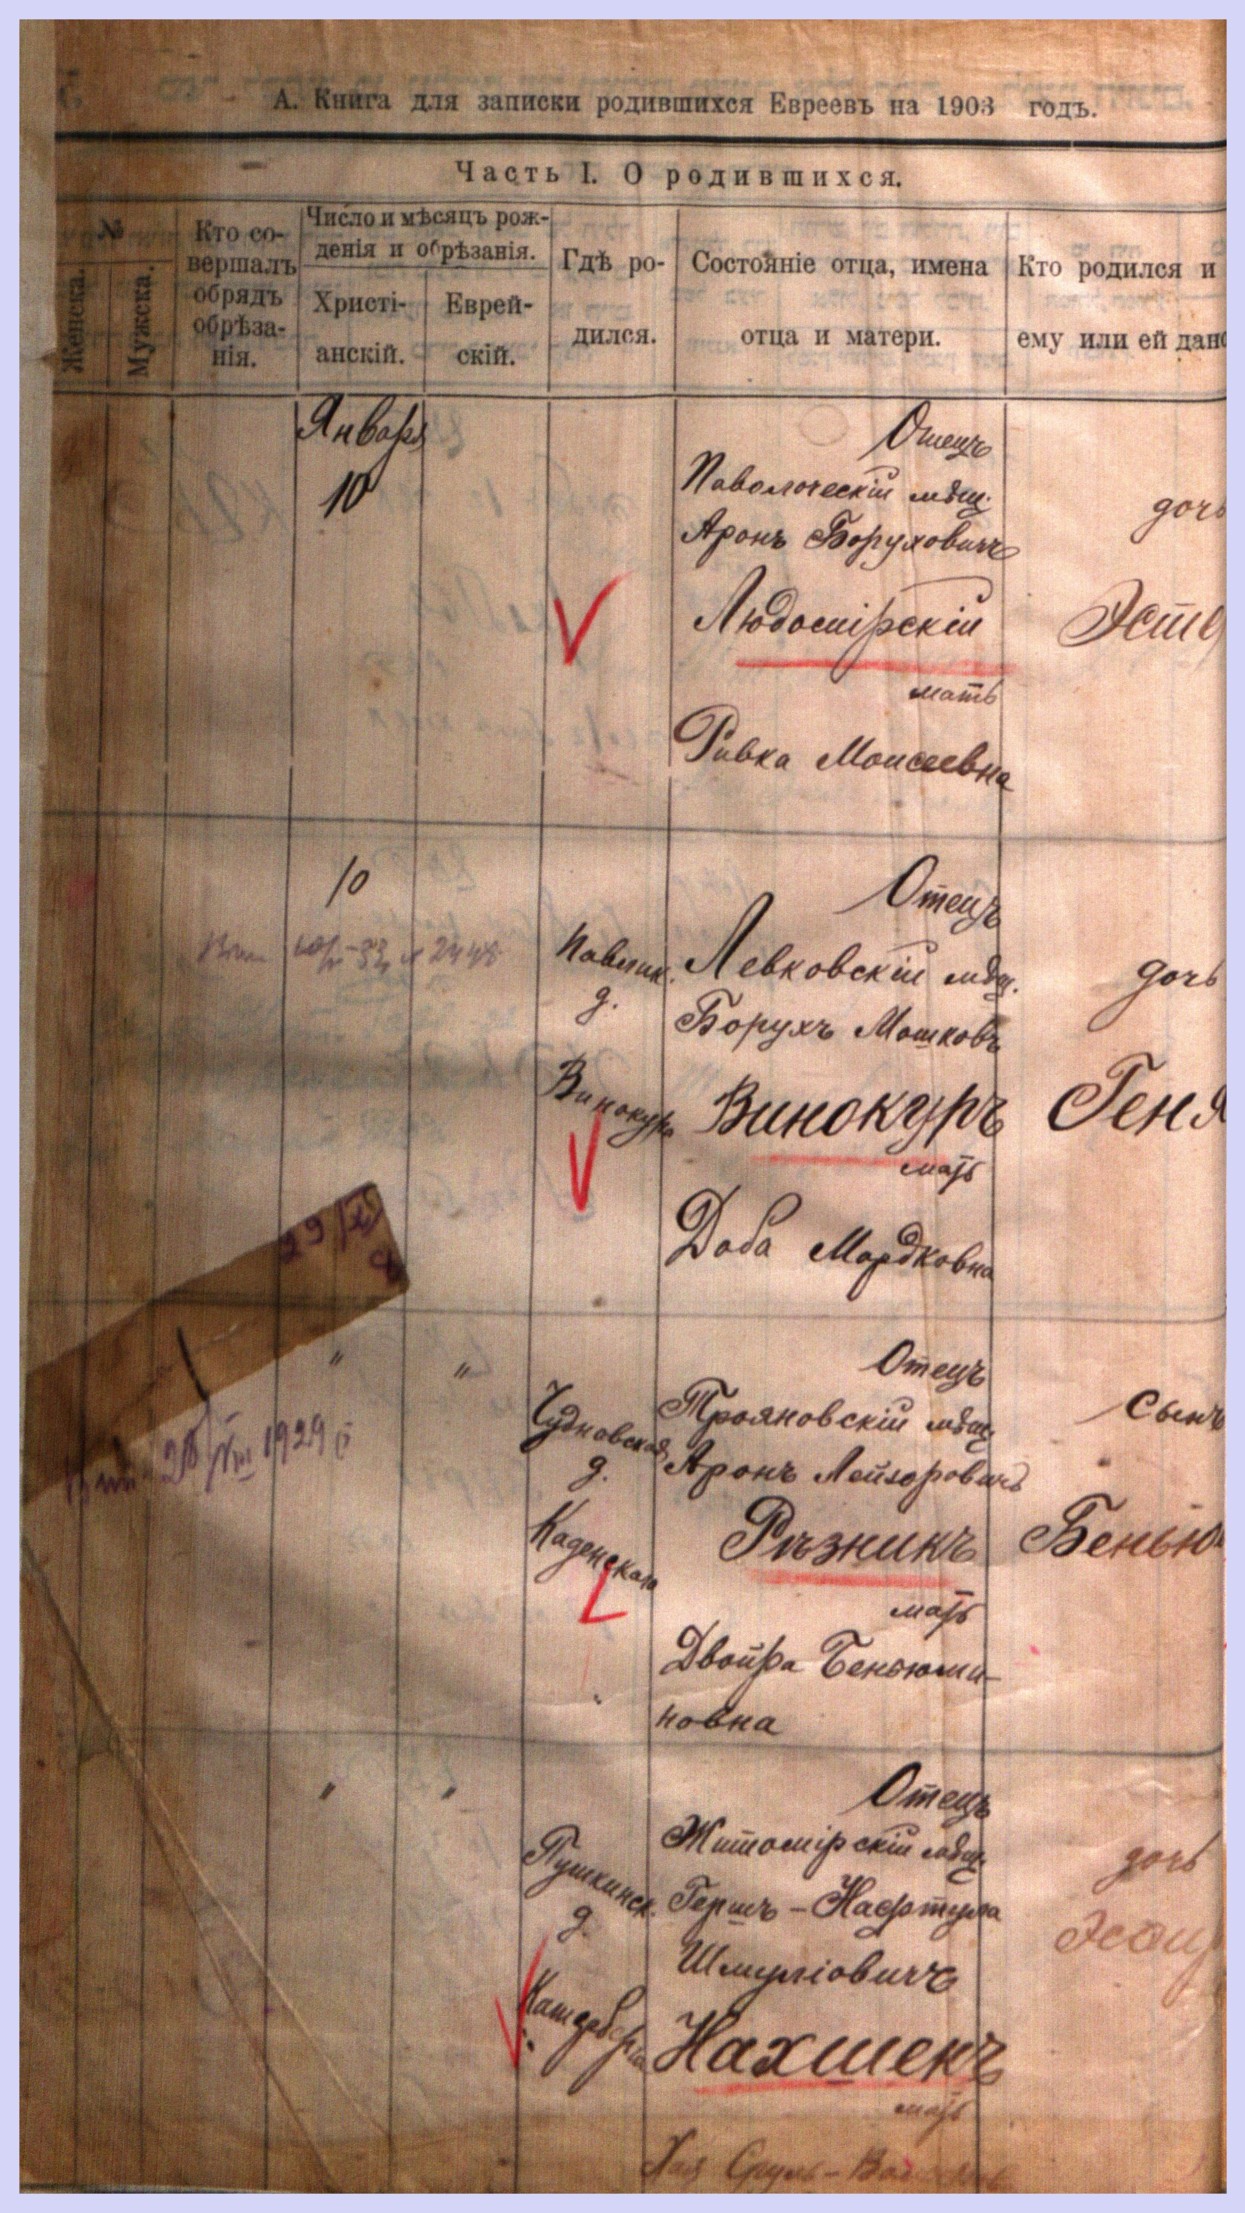 А. Книга для записки родившихся Евреевъ на 1903 годъ.
Часть I. О родившихся.
№
Женска.
Мужска.
Кто со-
вершалъ
обрядъ
обрѣза-
нія.
Число и мѣсяцъ рож-
денія и обрѣзанія.
Христі-
анскій.
Еврей-
скій.
Гдѣ ро-
дился.
Состояніе отца, имена
отца и матери.
Кто родился и
ему или ей дан
Января
10
Отецъ
Паволоческій мѣщ.
Аронъ Боруховичъ
Любомірскій
мать
Ривка Моисеевна
дочь
Эсте
10
2448
Павлик.
д.
Винокура
Отецъ
Левковскій мѣщ.
Борухъ Мошковъ
Винокуръ
мать
Доба Мордковна
дочь
Геня
29
28/VIII 1929
" "
Чудновская
д.
Каденскаго
Отецъ
Трояновскій мѣщ.
Аронъ Лейзоровичъ
Рѣзникъ
мать
Двойра Беньюми-
новна
Сынъ
Бенью
" "
Пушкинск.
д.
Отецъ
Житомірскій мѣщ.
Гершъ-Нафтула
Шмуліовичъ
Нахшенъ
мать
Хая Сруль-
дочь